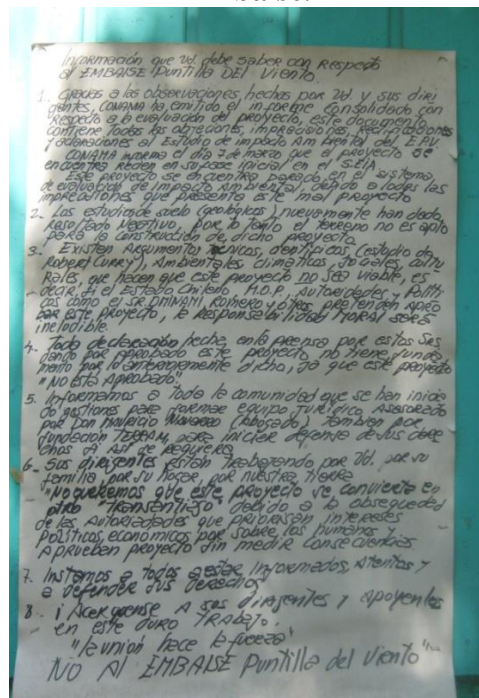 Información que Vd. debe saber con Respecto
al EMBALSE Puntilla DEL Viento.
1. Gracias a las observaciones, hechas por Vd y sus diri
gentes, CONAMA ha emitido el informe Consolidado con
Respecto a la evaluación del proyecto, este documento
contiene todas las objeciones, imprecisiones, Rectificaciones
y aclaraciones al Estudio de impacto Ambiental del E.P.V.
CONAMA informa el día 7 de marzo que el proyecto se
encuentra recien en su fase inicial en el S.E.I.A
Este proyecto se encuentra parado, en el sistema
de evaluación de impacto Ambiental, debido a todas las
imprecisiones que presenta este mal proyecto
2. Los estudios de suelo (geológicos), nuevamente han dado
Resultado Negativo, por lo tanto el terreno no es apto
para la construcción de dicho proyecto
3. Existen Argumentos Técnicos, científicos (estudio de
Robert Curry), Ambientales, climáticos, sociales, cultu
Rales, que hacen que este proyecto no sea viable, es
decir si el Estado Chileno, M.O.P, Autoridades y Políti
cos como el SR DMINAMI Romero y otros pretenden Apro
bar este proyecto, la Responsabilidad MORAL será
ineludible.
4. Toda declaración hecha en la prensa por estos SRS
dando por aprobado este proyecto, no tiene funda
mento por lo anteriormente dicho, ya que este proyecto
"NO está Aprobado".
5. Informamos a Toda la comunidad que se han inicia
do gestiones para formar equipo Jurídico, Asesorado
por Don Mauricio Navarro (Abogado) Tambien por
fundación TERRAM, para iniciar defensa de sus dere
chos si Así se Requiere
6. Sus dirigentes están Trabajando por Vd. por su
familia, por su hogar, por nuestra Tierra
"No queremos que este proyecto se convierta en
otro "Transantiago" debido a la obsequedad
de las Autoriadades que priorasan intereses
Políticos, económicos por sobre los humanos y
Aprueban proyecto sin medir consecuencias.
7. Instamos a Todos a estar informados, Atentos y
a defender sus derechos
8. ¡Acerquense A sus dirigentes y apoyenles
en este duro Trabajo.
"la unión hace la fuerza"
NO Al EMBALSE Puntilla del Viento"